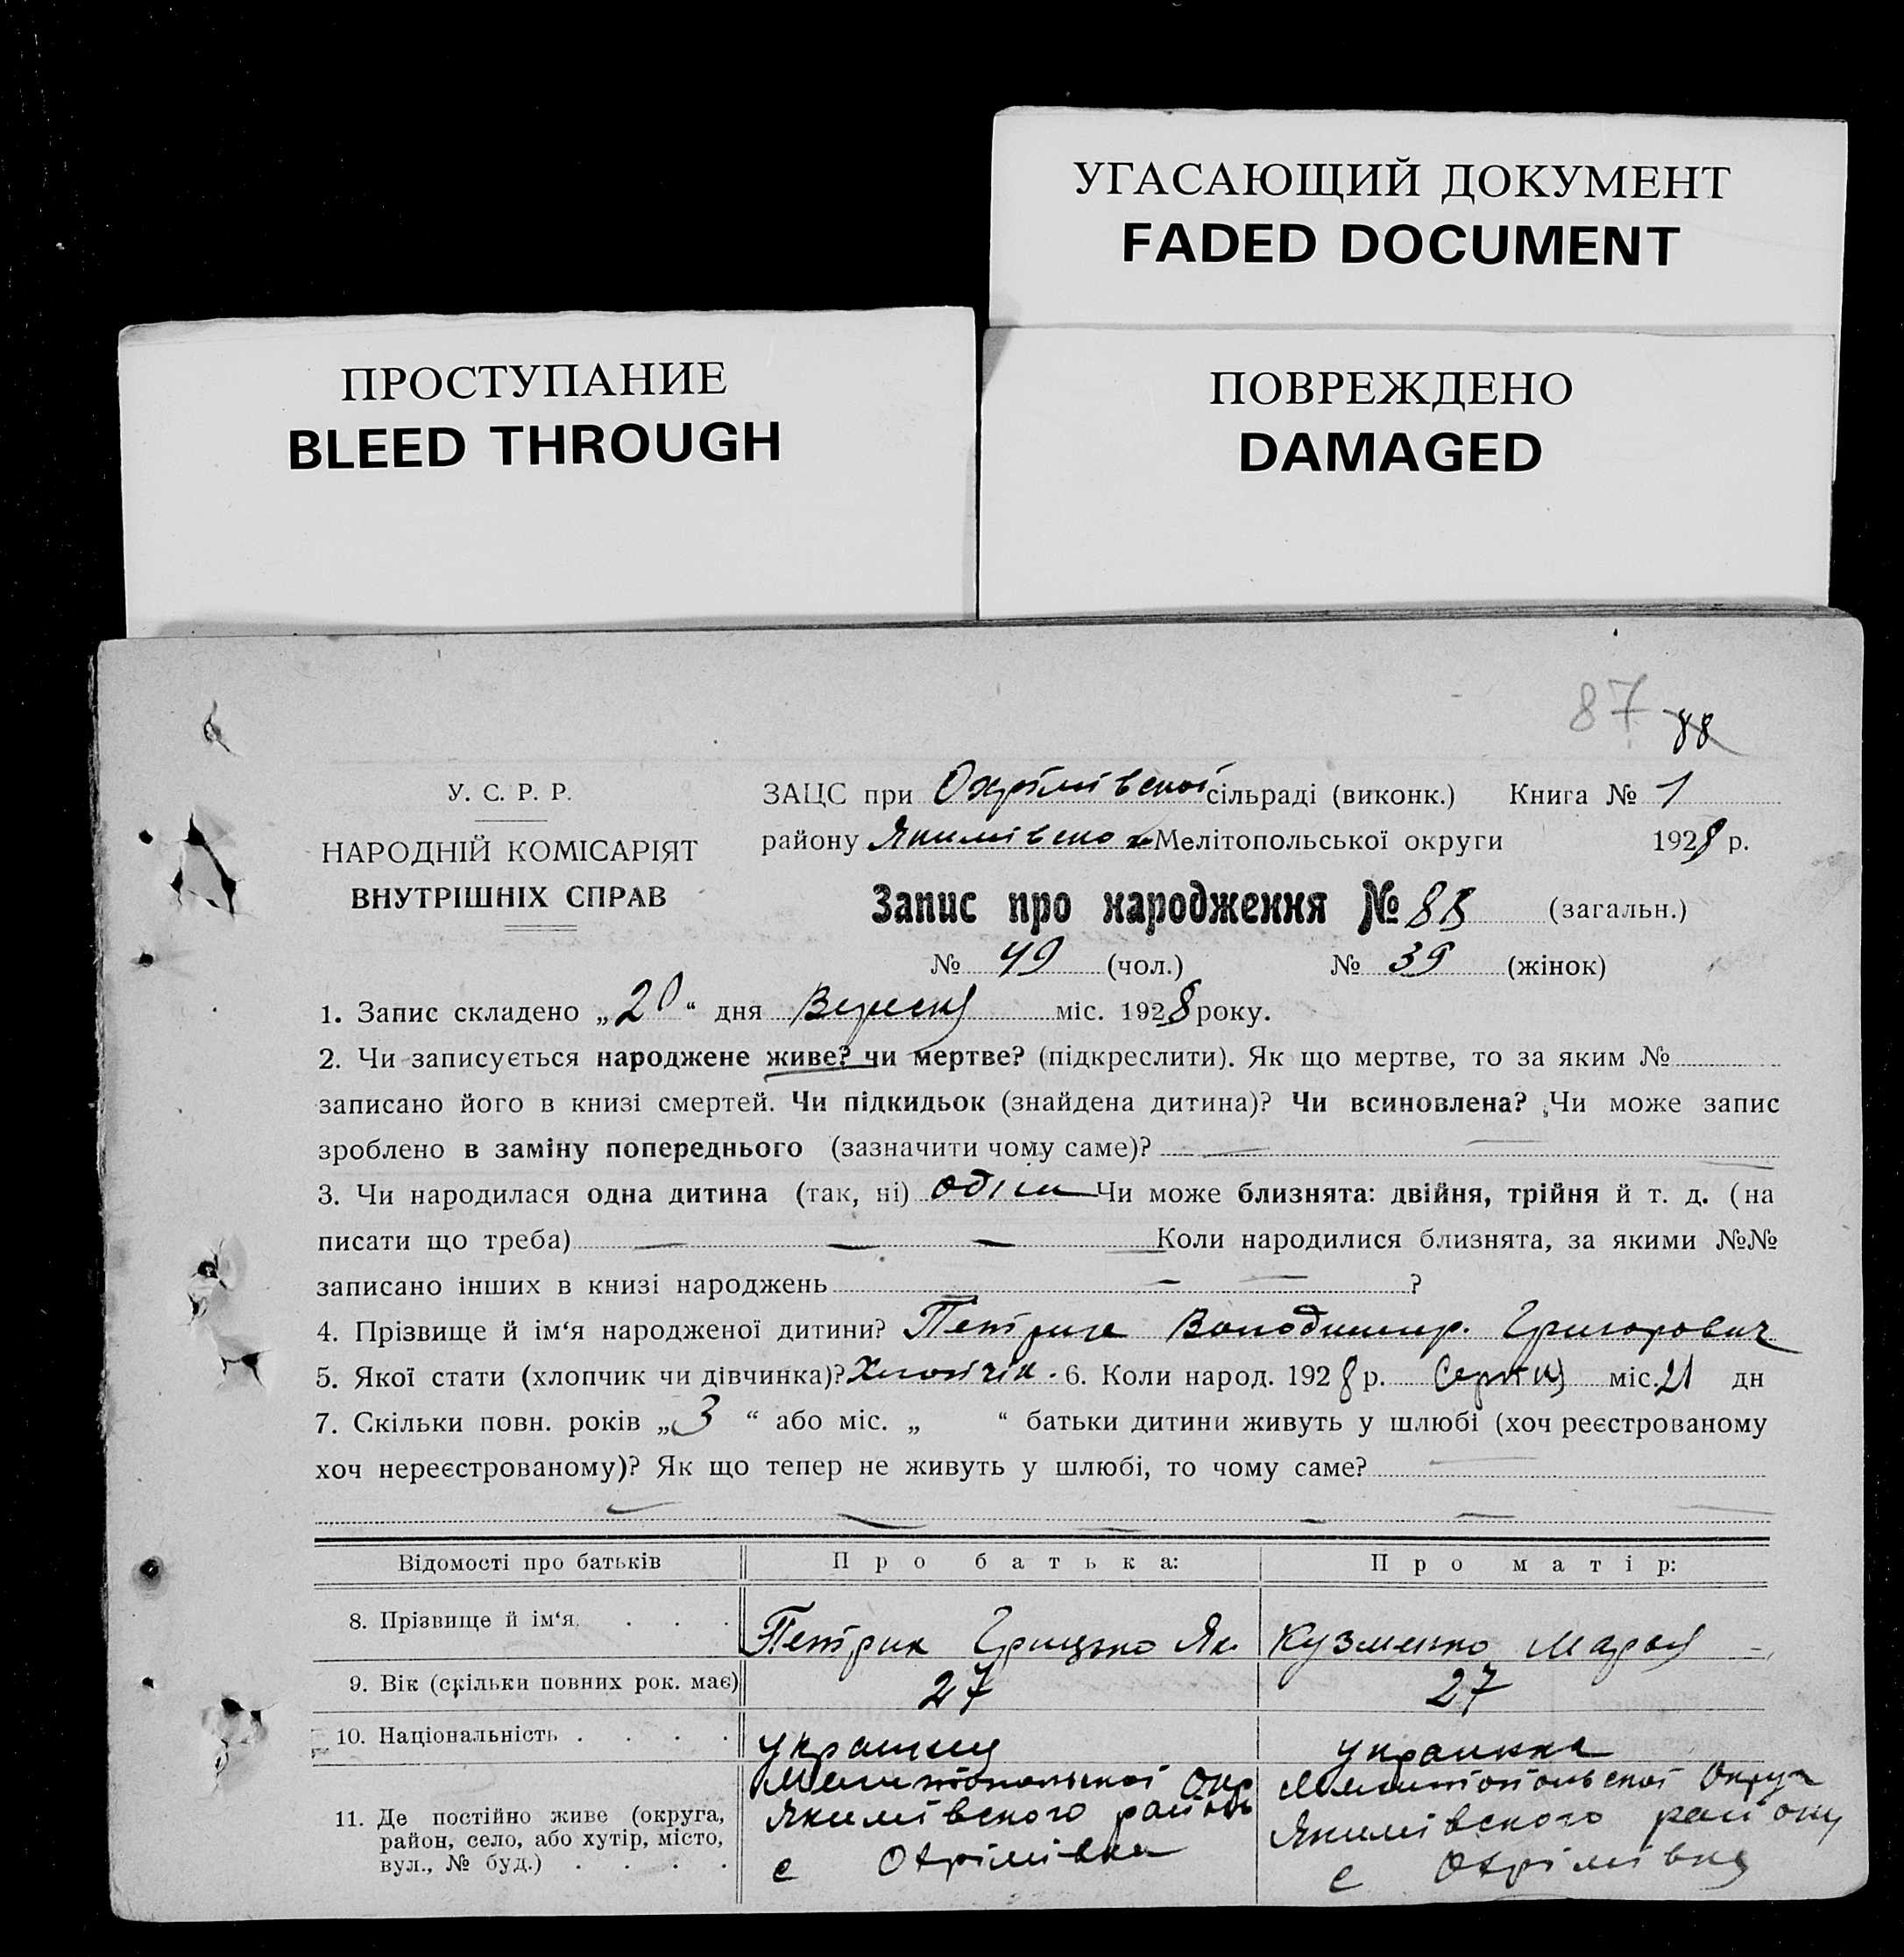 УГАСАЮЩИЙ ДОКУМЕНТ
FADED DOCUMENT
ПРОСТУПАНИЕ
BLEED THROUGH
ПОВРЕЖДЕНО
DAMAGED
87 88
У. С. Р. Р.
НАРОДНІЙ КОМІСАРІЯТ
ВНУТРІШНІХ СПРАВ
ЗАЦС при Охрімівської сільраді (виконк.) Книга № 1
району Якимівсько Мелітопольської округи 1928 р.
Запис про народження № 88 (загальн.)
№ 49 (чол.) № 39 (жінок)
1. Запис складено „20“ дня Вересня міс. 1928 року.
2. Чи записується народжене живе? чи мертве? (підкреслити). Як що мертве, то за яким №
записано його в книзі смертей. Чи підкидьок (знайдена дитина)? Чи всиновлена? Чи може запис
зроблено в заміну попереднього (зазначити чому саме)? —
3. Чи народилася одна дитина (так, ні) одім Чи може близнята: двійня, трійня й т. д. (на
писати що треба) — — — Коли народилися близнята, за якими №№
записано інших в книзі народжень — — ?
4. Прізвище й ім‘я народженої дитини? Петрик Володимир. Григорович
5. Якої стати (хлопчик чи дівчинка)? Хлопчик. 6. Коли народ. 1928 р. Серпня міс. 21 дн
7. Скільки повн. років „3“ або міс. „ “ батьки дитини живуть у шлюбі (хоч реєстрованому
хоч нереєстрованому)? Як що тепер не живуть у шлюбі, то чому саме? —
Відомості про батьків Про батька: Про матір:
8. Прізвище й ім‘я. . . . Петрик Грицько Як. Кузменко Мария
9. Вік (скільки повних рок. має) 27 27
10. Національність . . . . українец украинка
11. Де постійно живе (округа, район, село, або хутір, місто, вул., № буд.) . . . .
Мелитопольської Окр
Якимівского район
с Охрімівка
Мелитопольської Округи
Якимівского району
с Охрімівка